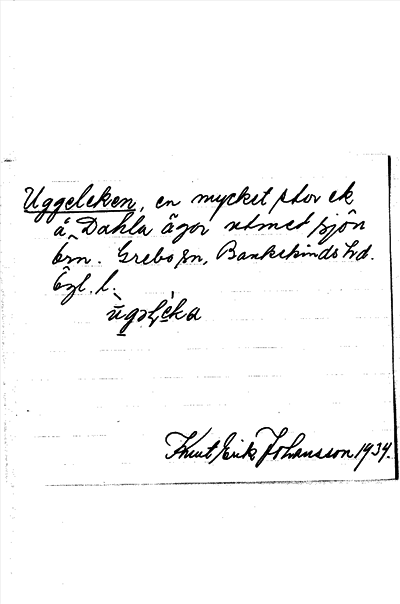 Uggeleken, en mycket stor ek
å Dahla ägor utmed sjön
Örn. Grebo sn, Bankekinds hd.
Ögl. l.
ùgəlè́ka
Knut Erik Johansson 1934.